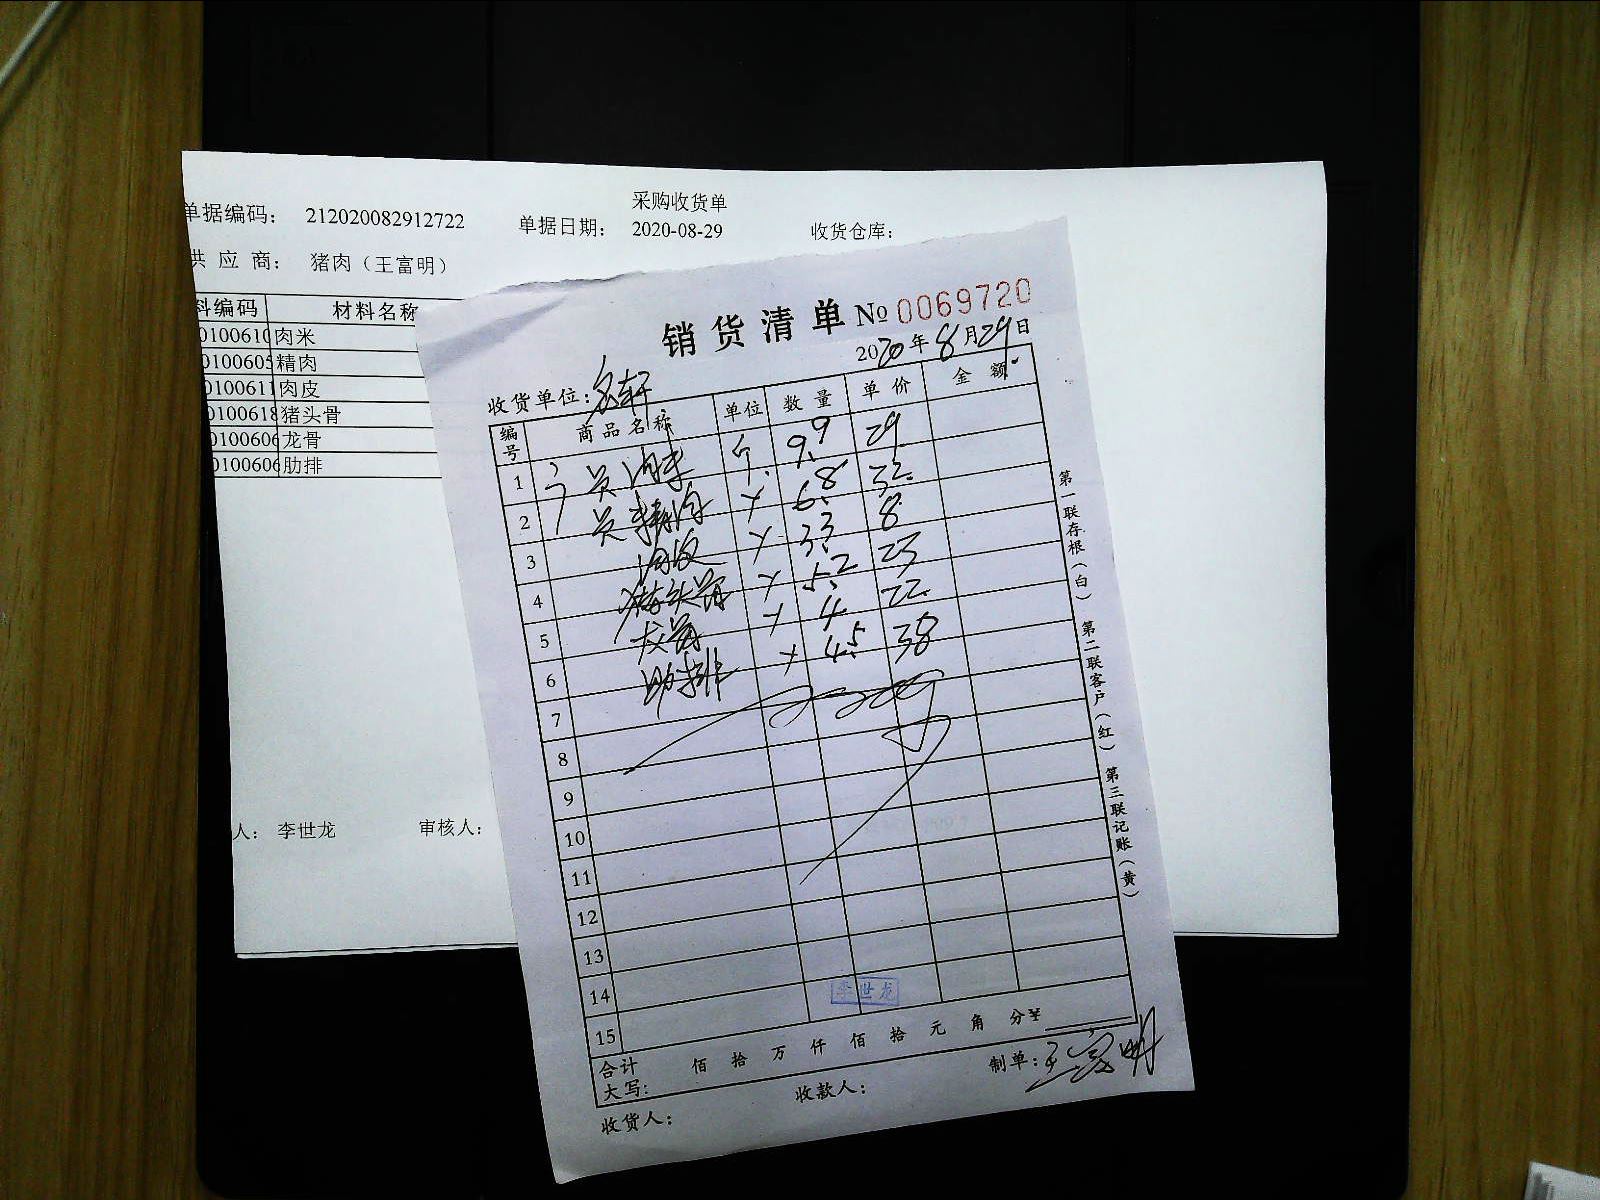 采购收货单
单据编码： 212020082912722 单据日期： 2020-08-29 收货仓库：
供 应 商： 猪肉（王富明）
料编码 材料名称
0100610 肉米
0100605 精肉
0100611 肉皮
0100618 猪头骨
0100606 龙骨
0100606 肋排
人： 李世龙 审核人：
销货清单 № 0069720
2020年8月29日
收货单位：名轩
编号 商品名称 单位 数量 单价 金额
1 肉末 斤 9.9 29
2 精肉 6.8 32
3 肉皮 3.3 8
4 猪头骨 5.2 23
5 龙骨 4 22
6 肋排 4.5 38
7
8
9
10
11
12
13
14
15
李世龙
合计大写： 佰 拾 万 仟 佰 拾 元 角 分¥
收货人： 收款人： 制单：王富明
第一联存根（白） 第二联客户（红） 第三联记账（黄）